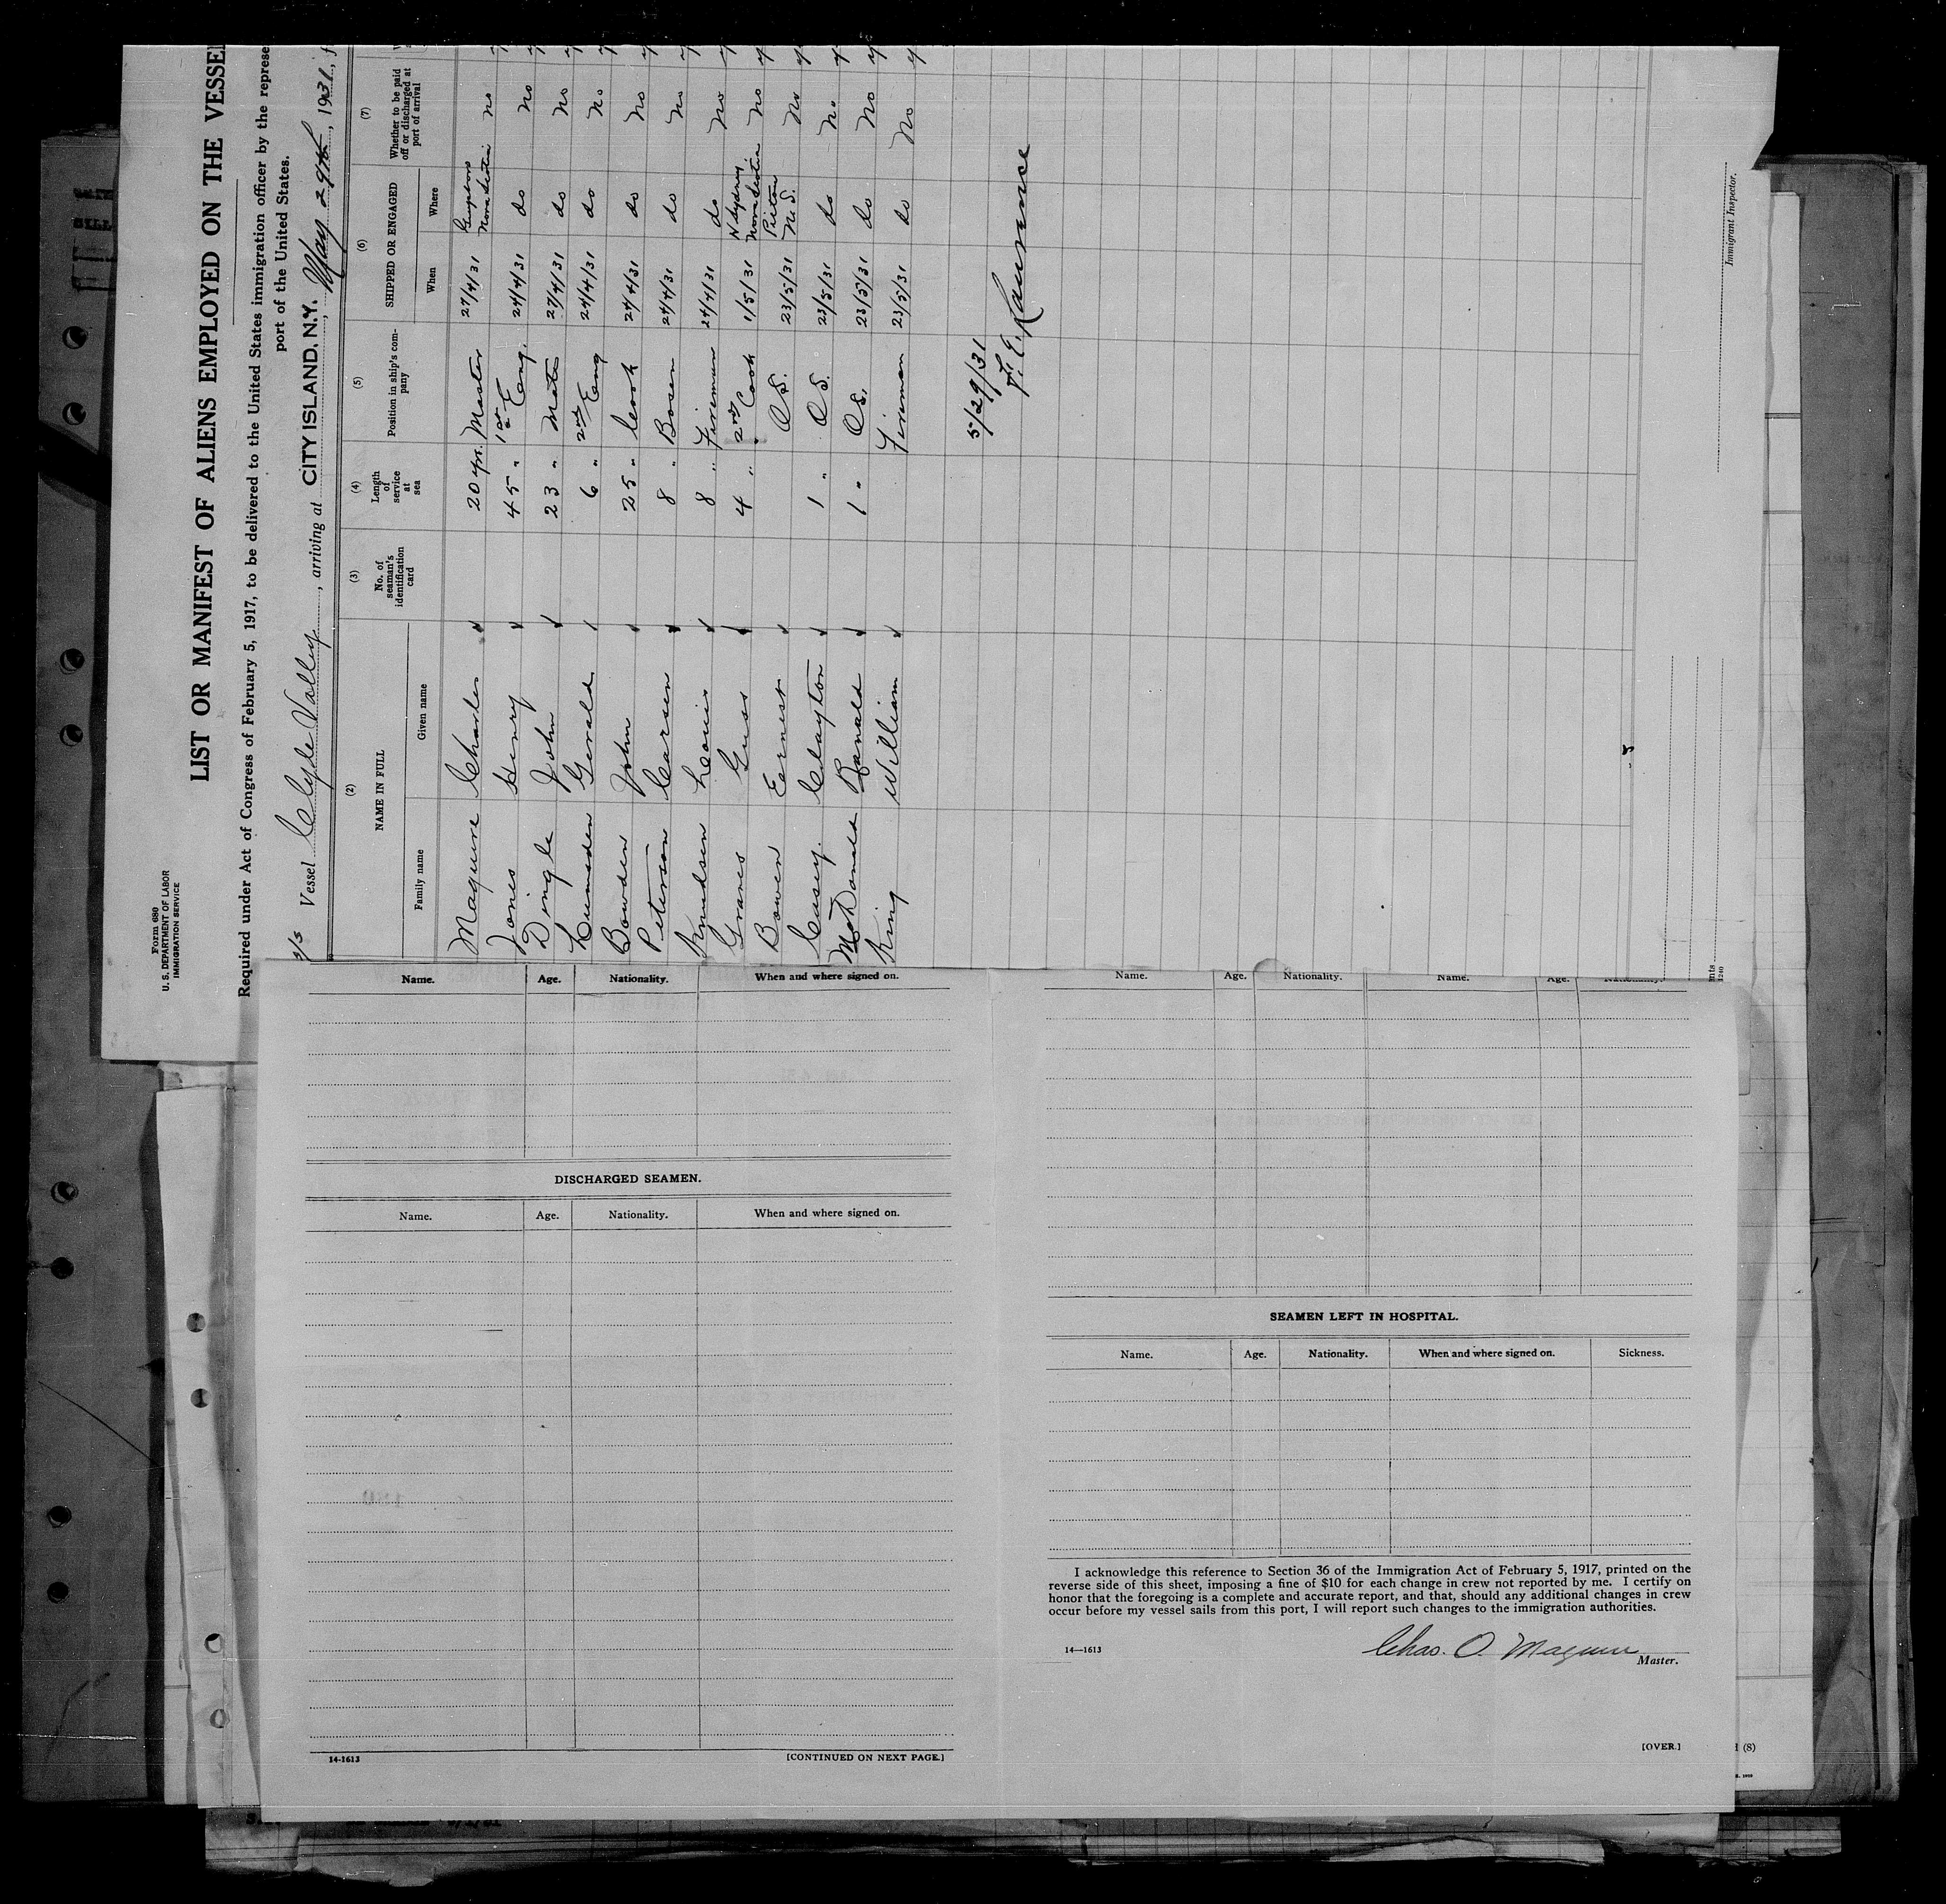 Form 680
U. S. DEPARTMENT OF LABOR
IMMIGRATION SERVICE
LIST OR MANIFEST OF ALIENS EMPLOYED ON THE VESSEL
Required under Act of Congress of February 5, 1917, to be delivered to the United States immigration officer by the represe
port of the United States.
S/S Vessel Clyde Valley, arriving at CITY ISLAND, N.Y., May 29th, 1931, f
(2) (3) (4) (5) (6) (7)
NAME IN FULL
Family name Given name
No. of seaman's identification card
Length of service at sea
Position in ship's company
SHIPPED OR ENGAGED
When Where
Whether to be paid off or discharged at port of arrival
Maguire Charles 20 yrs. Master 27/4/31 Nova Scotia no
Jones Henry 45 " 1st Eng. 24/4/31 do no
Dingle John 23 " Mate 27/4/31 do no
Lumsden Gerald 6 " 2nd Eng 24/4/31 do no
Bowden John 25 " Cook 24/4/31 do no
Peterson Carsen 8 " Bosen 24/4/31 do no
Knudsen Louis 8 " Fireman 24/4/31 do no
Graves Guss 4 " 2nd Cook 1/5/31 N Sydney Nova Scotia no
Bowen Earnest O.S. 23/5/31 Picton N.S. no
Casey. Clayton 1 " O.S. 23/5/31 do no
McDonald Ranald 1 " O.S. 23/5/31 do no
King William Fireman 23/5/31 do no
5/29/31
Immigrant Inspector.
Name. Age. Nationality. When and where signed on.
DISCHARGED SEAMEN.
Name. Age. Nationality. When and where signed on.
14-1613
[CONTINUED ON NEXT PAGE.]
Name. Age. Nationality. Name. Age. Nationality.
SEAMEN LEFT IN HOSPITAL.
Name. Age. Nationality. When and where signed on. Sickness.
I acknowledge this reference to Section 36 of the Immigration Act of February 5, 1917, printed on the
reverse side of this sheet, imposing a fine of $10 for each change in crew not reported by me. I certify on
honor that the foregoing is a complete and accurate report, and that, should any additional changes in crew
occur before my vessel sails from this port, I will report such changes to the immigration authorities.
14—1613
Chas. O. Maguire
Master.
[OVER.]
(8)